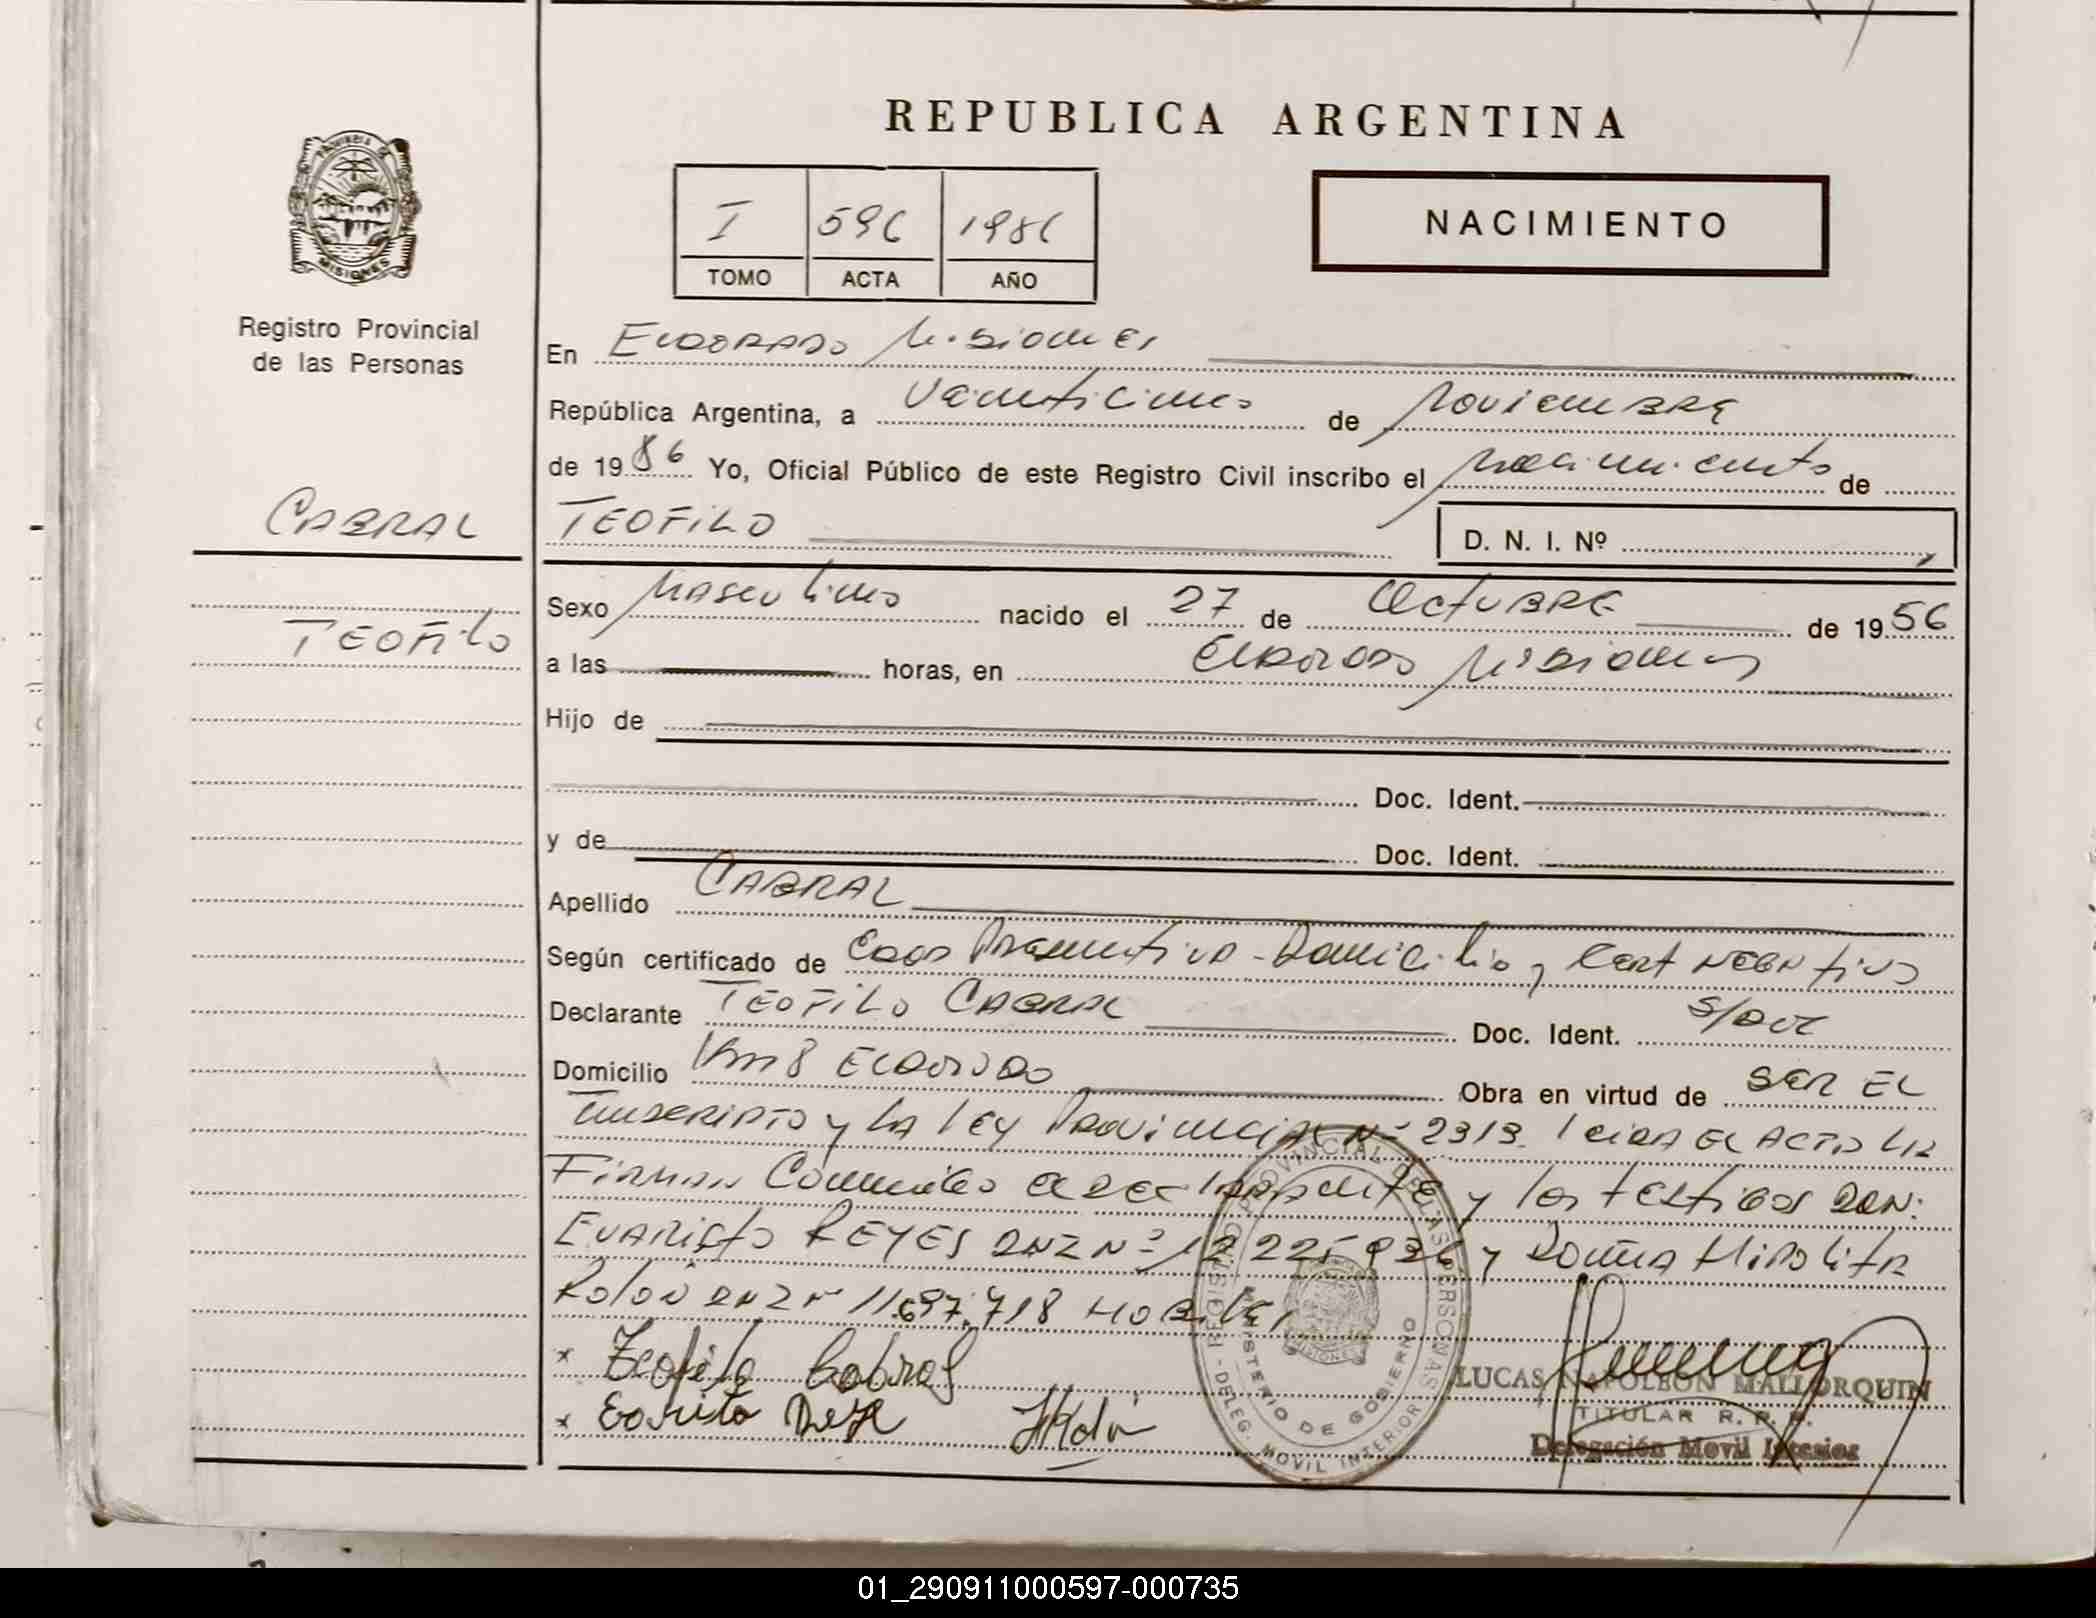 REPUBLICA ARGENTINA
PROVINCIA DE
MISIONES
Registro Provincial
de las Personas
I 596 1986
TOMO ACTA AÑO
NACIMIENTO
En ELDORADO Misiones
República Argentina, a Veinticinco de Noviembre
de 1986 Yo, Oficial Público de este Registro Civil inscribo el Nacimiento de
CABRAL
TEOFILO
D. N. I. Nº
TEOFILO
Sexo Masculino nacido el 27 de OCTUBRE de 1956
a las horas, en Eldorado Misiones
Hijo de
Doc. Ident.
y de Doc. Ident.
Apellido CABRAL
Según certificado de Edad Presuntiva - Domicilio y Cert NEGATIVO
Declarante TEOFILO CABRAL Doc. Ident. S/DOC
Domicilio Km 8 ELDORADO Obra en virtud de SER EL
Inscripto y LA LEY PROVINCIAL Nº 2313 Leida EL ACTA LA
Firman Conmigo el declarante y los testigos DON:
EVARISTO REYES DNI Nº 12 225 936 y DOÑA HIPOLITA
Rolon DNI Nº 11.697.718 HABILES
x Teofilo Cabral
x
HRolon
REGISTRO PROVINCIAL DE LAS PERSONAS
MINISTERIO DE GOBIERNO
- DELEG. MOVIL INTERIOR
MISIONES
LUCAS NAPOLEON MALLORQUIN
TITULAR R. P. P.
Delegación Movil Interior
01_290911000597-000735